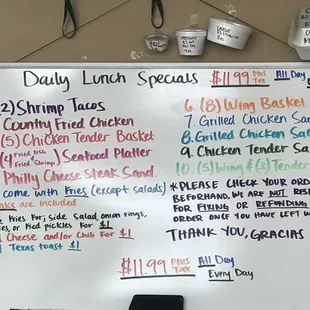 Daily Lunch Specials $11.99 Plus Tax All Day
2) Shrimp Tacos
Country Fried Chicken
(5) Chicken Tender Basket
(4 Fried Fish Fried Shrimp) Seafood Platter
Philly Cheese Steak Sand.
come with Fries (except salads)
are included
Fries For; Side Salad, onion rings,
or Fried pickles for $1
Cheese and/or Chili For $1
Texas toast $1
6. (8) Wing Basket
7. Grilled Chicken
8. Grilled Chicken
9. Chicken Tender
10. (5) Wing & (3) Tender
*PLEASE CHECK YOUR
BEFOREHAND, WE ARE NOT
FOR FIXING OR REFUNDING
ORDER ONCE YOU HAVE LEFT
THANK YOU, GRACIAS
$11.99 Plus Tax All Day
Every Day